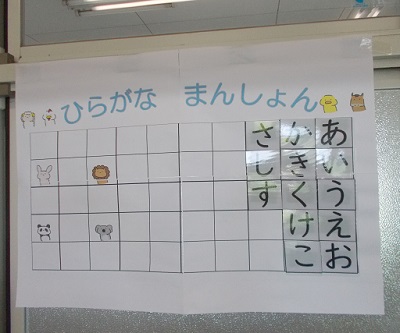 ひらがな まんしょん
あいうえお
かきくけこ
さしす